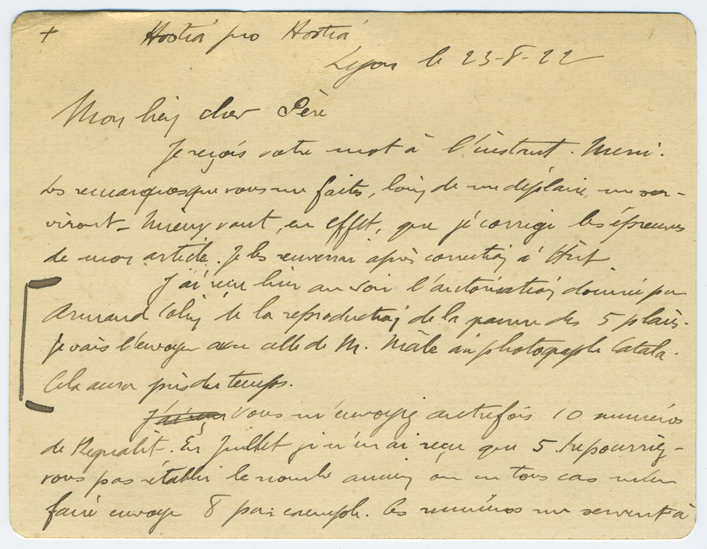 + Hostia pro Hostia
Lyon le 23-8-22
Mon bien cher Père
Je reçois votre mot à l'instant. Merci.
Les remarques que vous me faites, loin de me déplaire, me ser-
viront - Mieux vaut, en effet, que je corrige les épreuves
de mon article. Je les renverrai après correction à
J'ai reçu hier au soir l'autorisation donnée par
Armand Colin de la reproduction de la pavure des 5 plaies.
Je vais l'envoyer avec celle de M. Mâle au photographe Catala.
Cela aura pris du temps.
Vous m'envoyiez autrefois 10 numéros
de Regnabit. En Juillet je n'en ai reçu que 5. Ne pourriez-
vous pas rétablir le nombre ancien ou en tous cas m'en
faire envoyer 8 par exemple. Ces numéros me servent à